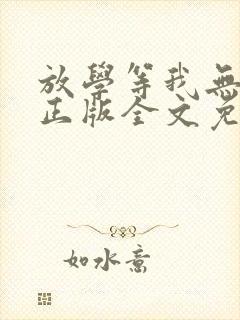 放學等我無
正版全文免
如水意